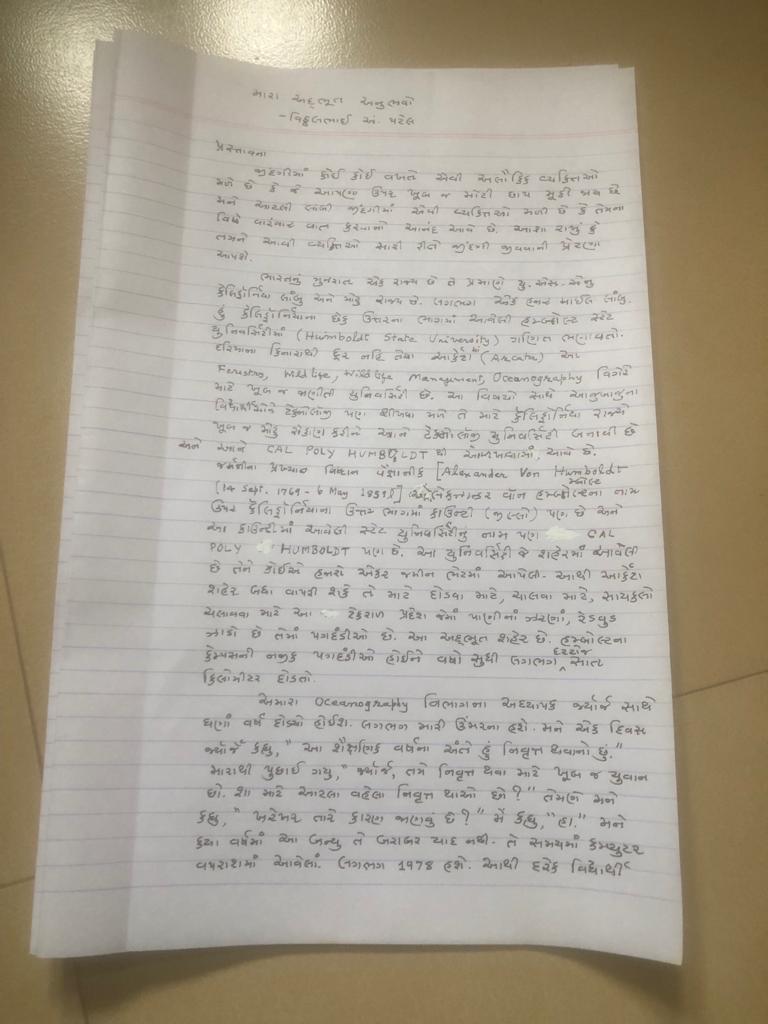 મારા અદ્ભૂત અનુભવો
- વિઠ્ઠલભાઈ અં. પટેલ
પ્રસ્તાવના
જીંદગીમાં કોઈ કોઈ વખતે એવી અલૌકિક વ્યક્તિઓ
મળે છે કે જે આપણા ઉપર ખૂબ જ મોટી છાપ મૂકી જાય છે
મને આટલી લાંબી જીંદગીમાં એવી વ્યક્તિઓ મળી છે કે તેમના
વિષે વારંવાર વાત કરવાનો આનંદ આવે છે. આશા રાખું કે
તમને આવી વ્યક્તિઓ સારી રીતે જીંદગી જીવવાની પ્રેરણા
આપશે.
ભારતનું ગુજરાત એક રાજ્ય છે તે પ્રમાણે યુ. એસ. એનુ
કેલિફોર્નિયા લાંબુ અને મોટું રાજ્ય છે. લગભગ એક હજાર માઈલ લાંબુ.
હું કેલિફોર્નિયાના છેક ઉત્તરના ભાગમાં આવેલી હમ્બોલ્ટ સ્ટેટ
યુનિવર્સિટીમાં (Humboldt State University) ગણિત ભણાવતો.
દરિયાના કિનારાથી દૂર નહિ તેવા આર્કેટા (Arcata) માં
Forestry, Wild life, Wild life Management, Oceanography વિગેરે
માટે ખૂબ જ જાણીતી યુનિવર્સિટી છે. આ વિષયો સાથે આજુબાજુના
વિદ્યાર્થીઓને ટેક્નોલોજી પણ શીખવા મળે તે માટે કેલિફોર્નિયા રાજ્યે
ખૂબ જ મોટું રોકાણ કરીને આને ટેક્નોલોજી યુનિવર્સિટી બનાવી છે
અને આને CAL POLY HUMBOLDT થી ઓળખવામાં આવે છે.
જર્મનીના પ્રખ્યાત વિદ્વાન વૈજ્ઞાનીક [Alexander Von Humboldt
(14 Sept. 1769 - 6 May 1859)] એલેકઝાન્ડર વૉન હમ્બોલ્ટના નામ
ઉપર કેલિફોર્નિયાના ઉત્તર ભાગમાં કાઉન્ટી (જીલ્લો) પણ છે અને
આ કાઉન્ટીમાં આવેલી સ્ટેટ યુનિવર્સિટીનું નામ પણ CAL
POLY HUMBOLDT પણ છે. આ યુનિવર્સિટી જે શહેરમાં આવેલી
છે તેને કોઈએ હજારો એકર જમીન ભેટમાં આપેલી. આથી આર્કેટા
શહેર બધા વાપરી શકે તે માટે દોડવા માટે, ચાલવા માટે, સાયકલો
ચલાવવા માટે આ ટેકરાળ પ્રદેશ જેમાં પાણીનાં ઝરણાં, રેડવુડ
ઝાડો છે તેમાં પગદંડીઓ છે. આ અદ્ભૂત શહેર છે. હમ્બોલ્ટના
કેમ્પસની નજીક પગદંડીઓ હોઈને વર્ષો સુધી લગભગ દરરોજ સાત
કિલોમીટર દોડતો.
અમારા Oceanography વિભાગના અધ્યાપક જ્યોર્જ સાથે
ઘણાં વર્ષ દોડ્યો હોઈશ. લગભગ મારી ઉંમરના હશે. મને એક દિવસ
જ્યોર્જે કહ્યુ, "આ શૈક્ષણિક વર્ષના અંતે હું નિવૃત્ત થવાનો છું."
મારાથી પુછાઈ ગયુ, "જ્યોર્જ, તમે નિવૃત્ત થવા માટે ખૂબ જ યુવાન
છો. શા માટે આટલા વહેલા નિવૃત્ત થાઓ છો?" તેમણે મને
કહ્યુ, "ખરેખર તારે કારણ જાણવું છે?" મેં કહ્યુ, "હા." મને
કયા વર્ષમાં આ બન્યુ તે બરાબર યાદ નથી. તે સમયમાં કમ્પ્યુટર
વપરાશમાં આવેલાં. લગભગ 1978 હશે. આથી દરેક વિદ્યાર્થી